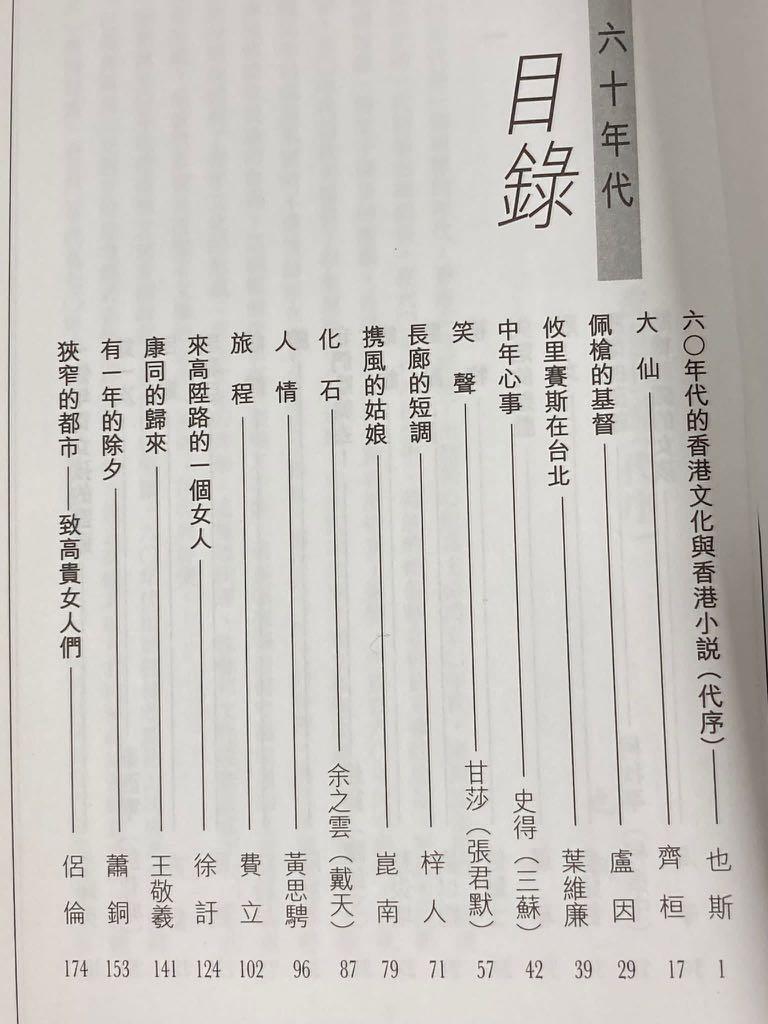 六十年代
目錄
六〇年代的香港文化與香港小説（代序）——也斯 1
大仙——齊桓 17
佩槍的基督——盧因 29
攸里賽斯在台北——葉維廉 39
中年心事——史得（三蘇） 42
笑聲——甘莎（張君默） 57
長廊的短調——梓人 71
携風的姑娘——崑南 79
化石——余之雲（戴天） 87
人情——黃思騁 96
旅程——費立 102
來高陞路的一個女人——徐訏 124
康同的歸來——王敬羲 141
有一年的除夕——蕭銅 153
狹窄的都市——致高貴女人們——侶倫 174